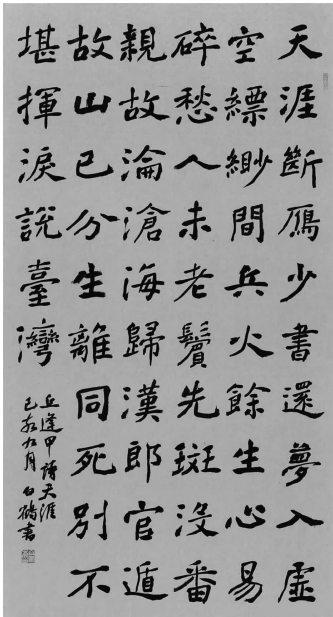 天涯斷鴈少書還夢入虛
空縹緲間兵火餘生心易
碎愁人未老鬢先斑沒番
親故淪滄海歸漢郎官遁
故山已分生離同死別不
堪揮淚說臺灣
丘逢甲詩天涯
己亥九月 白鶴書